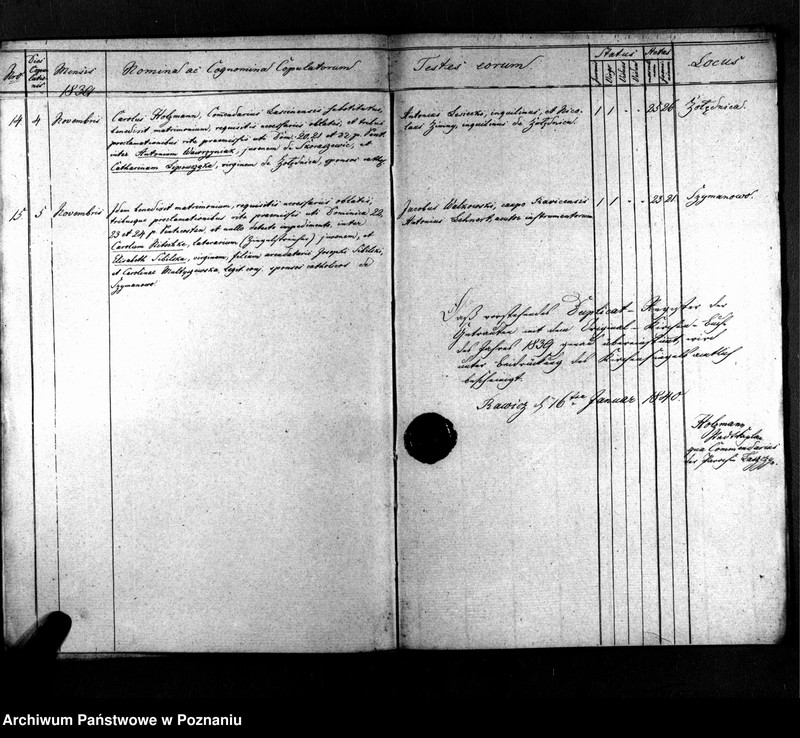 Nro Dies Copulationis Mensis Nomina ac Cognomina Copulatorum Testes eorum Status Aetas Locus
1839
14 4 Novembris Carolus Holzmann, Comendarius substitutus,
benedixit matrimonium, requisitis necessariis oblatis, et tribus
proclamationibus rite praemissis uti Dom: 20, 21 et 22 p. Pent.
inter Antonium Wawrzyniak, juvenem de et
Catharinam virginem de Żołędnica, sponsos cathcos.
Antonius inquilinus, et Nico
laus inquilinus de Żołędnica.
1 1 . . 25 26 Żołędnica.
15 5 Novembris Idem benedixit matrimonium, requisitis necessariis oblatis,
tribusque proclamationibus rite praemissis uti Dominica 22,
23 et 24 p. Pentecosten, et nullo detecto impedimento, inter
Carolum juvenem, et
Elisabeth virginem, filiam Josephi
et Carolinae legit. conj. sponsos catholicos de
Szymanowo
Jacobus Walkowski, Rawicensis
Antonius Lehnert, instrumentorum
1 1 . . 23 21 Szymanowo.
Daß vorstehendes Duplicat-Register der
Getrauten mit dem Original-Kirchen-Buche
des Jahres 1839 genau übereinstimmt, wird
unter Beidrückung des Kirchensiegels amtlich
bescheinigt.
Rawicz d 16ten Januar 1840
Holzmann
qua Commendarius
der Parochie
Archiwum Państwowe w Poznaniu